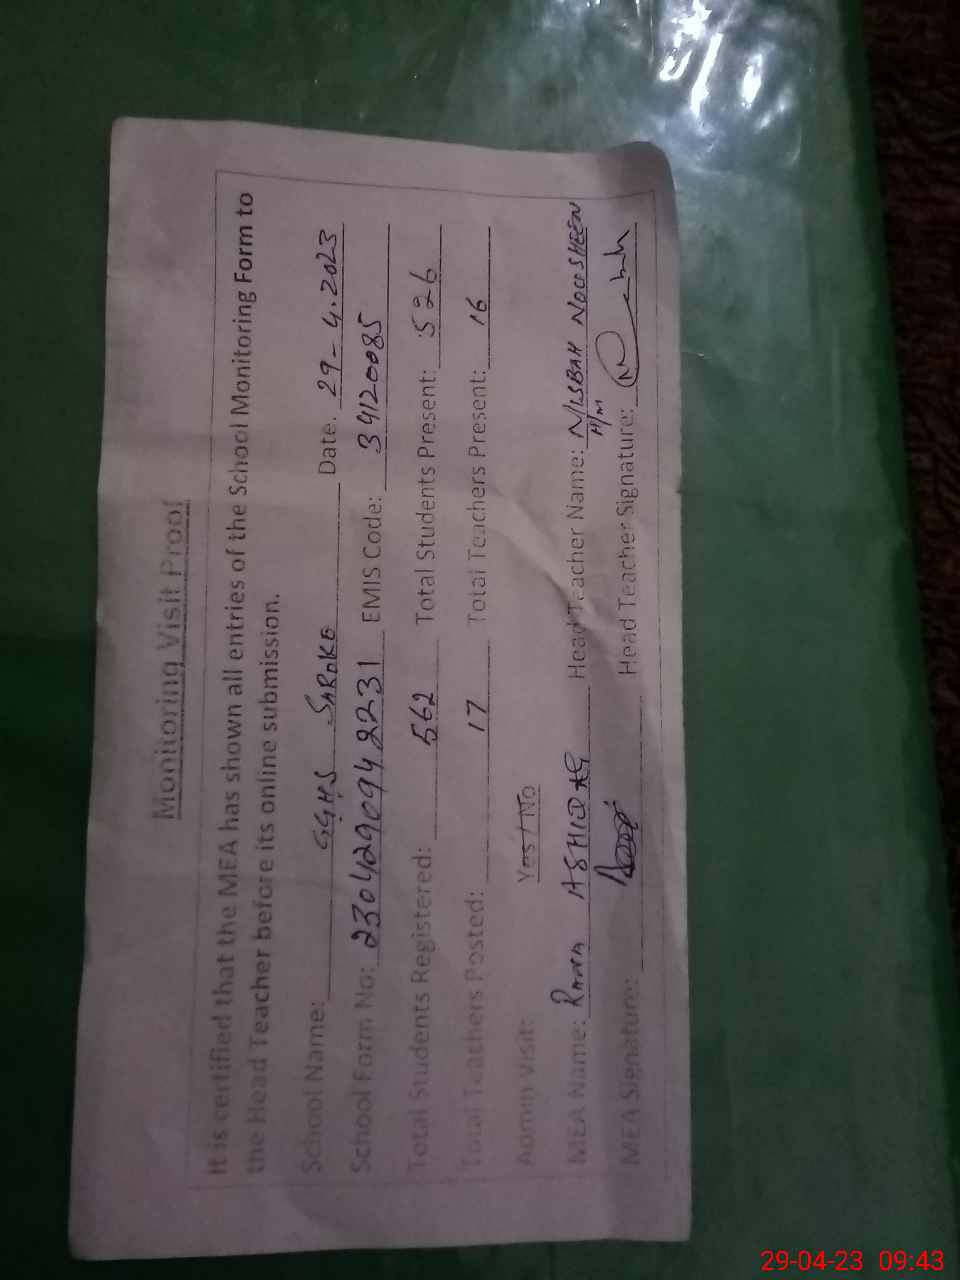 Monitoring Visit Proof
It is certified that the MEA has shown all entries of the School Monitoring Form to
the Head Teacher before its online submission.
School Name: GGHS SAROKE Date: 29-4.2023
School Form No: 230429094 2231 EMIS Code: 34120085
Total Students Registered: 562 Total Students Present: 526
Total Teachers Posted: 17 Total Teachers Present: 16
Admin Visit: Yes / No
MEA Name: RANA Head Teacher Name: MISBAH NOOSHEEN
H/M
MEA Signature: Head Teacher Signature:
29-04-23 09:43